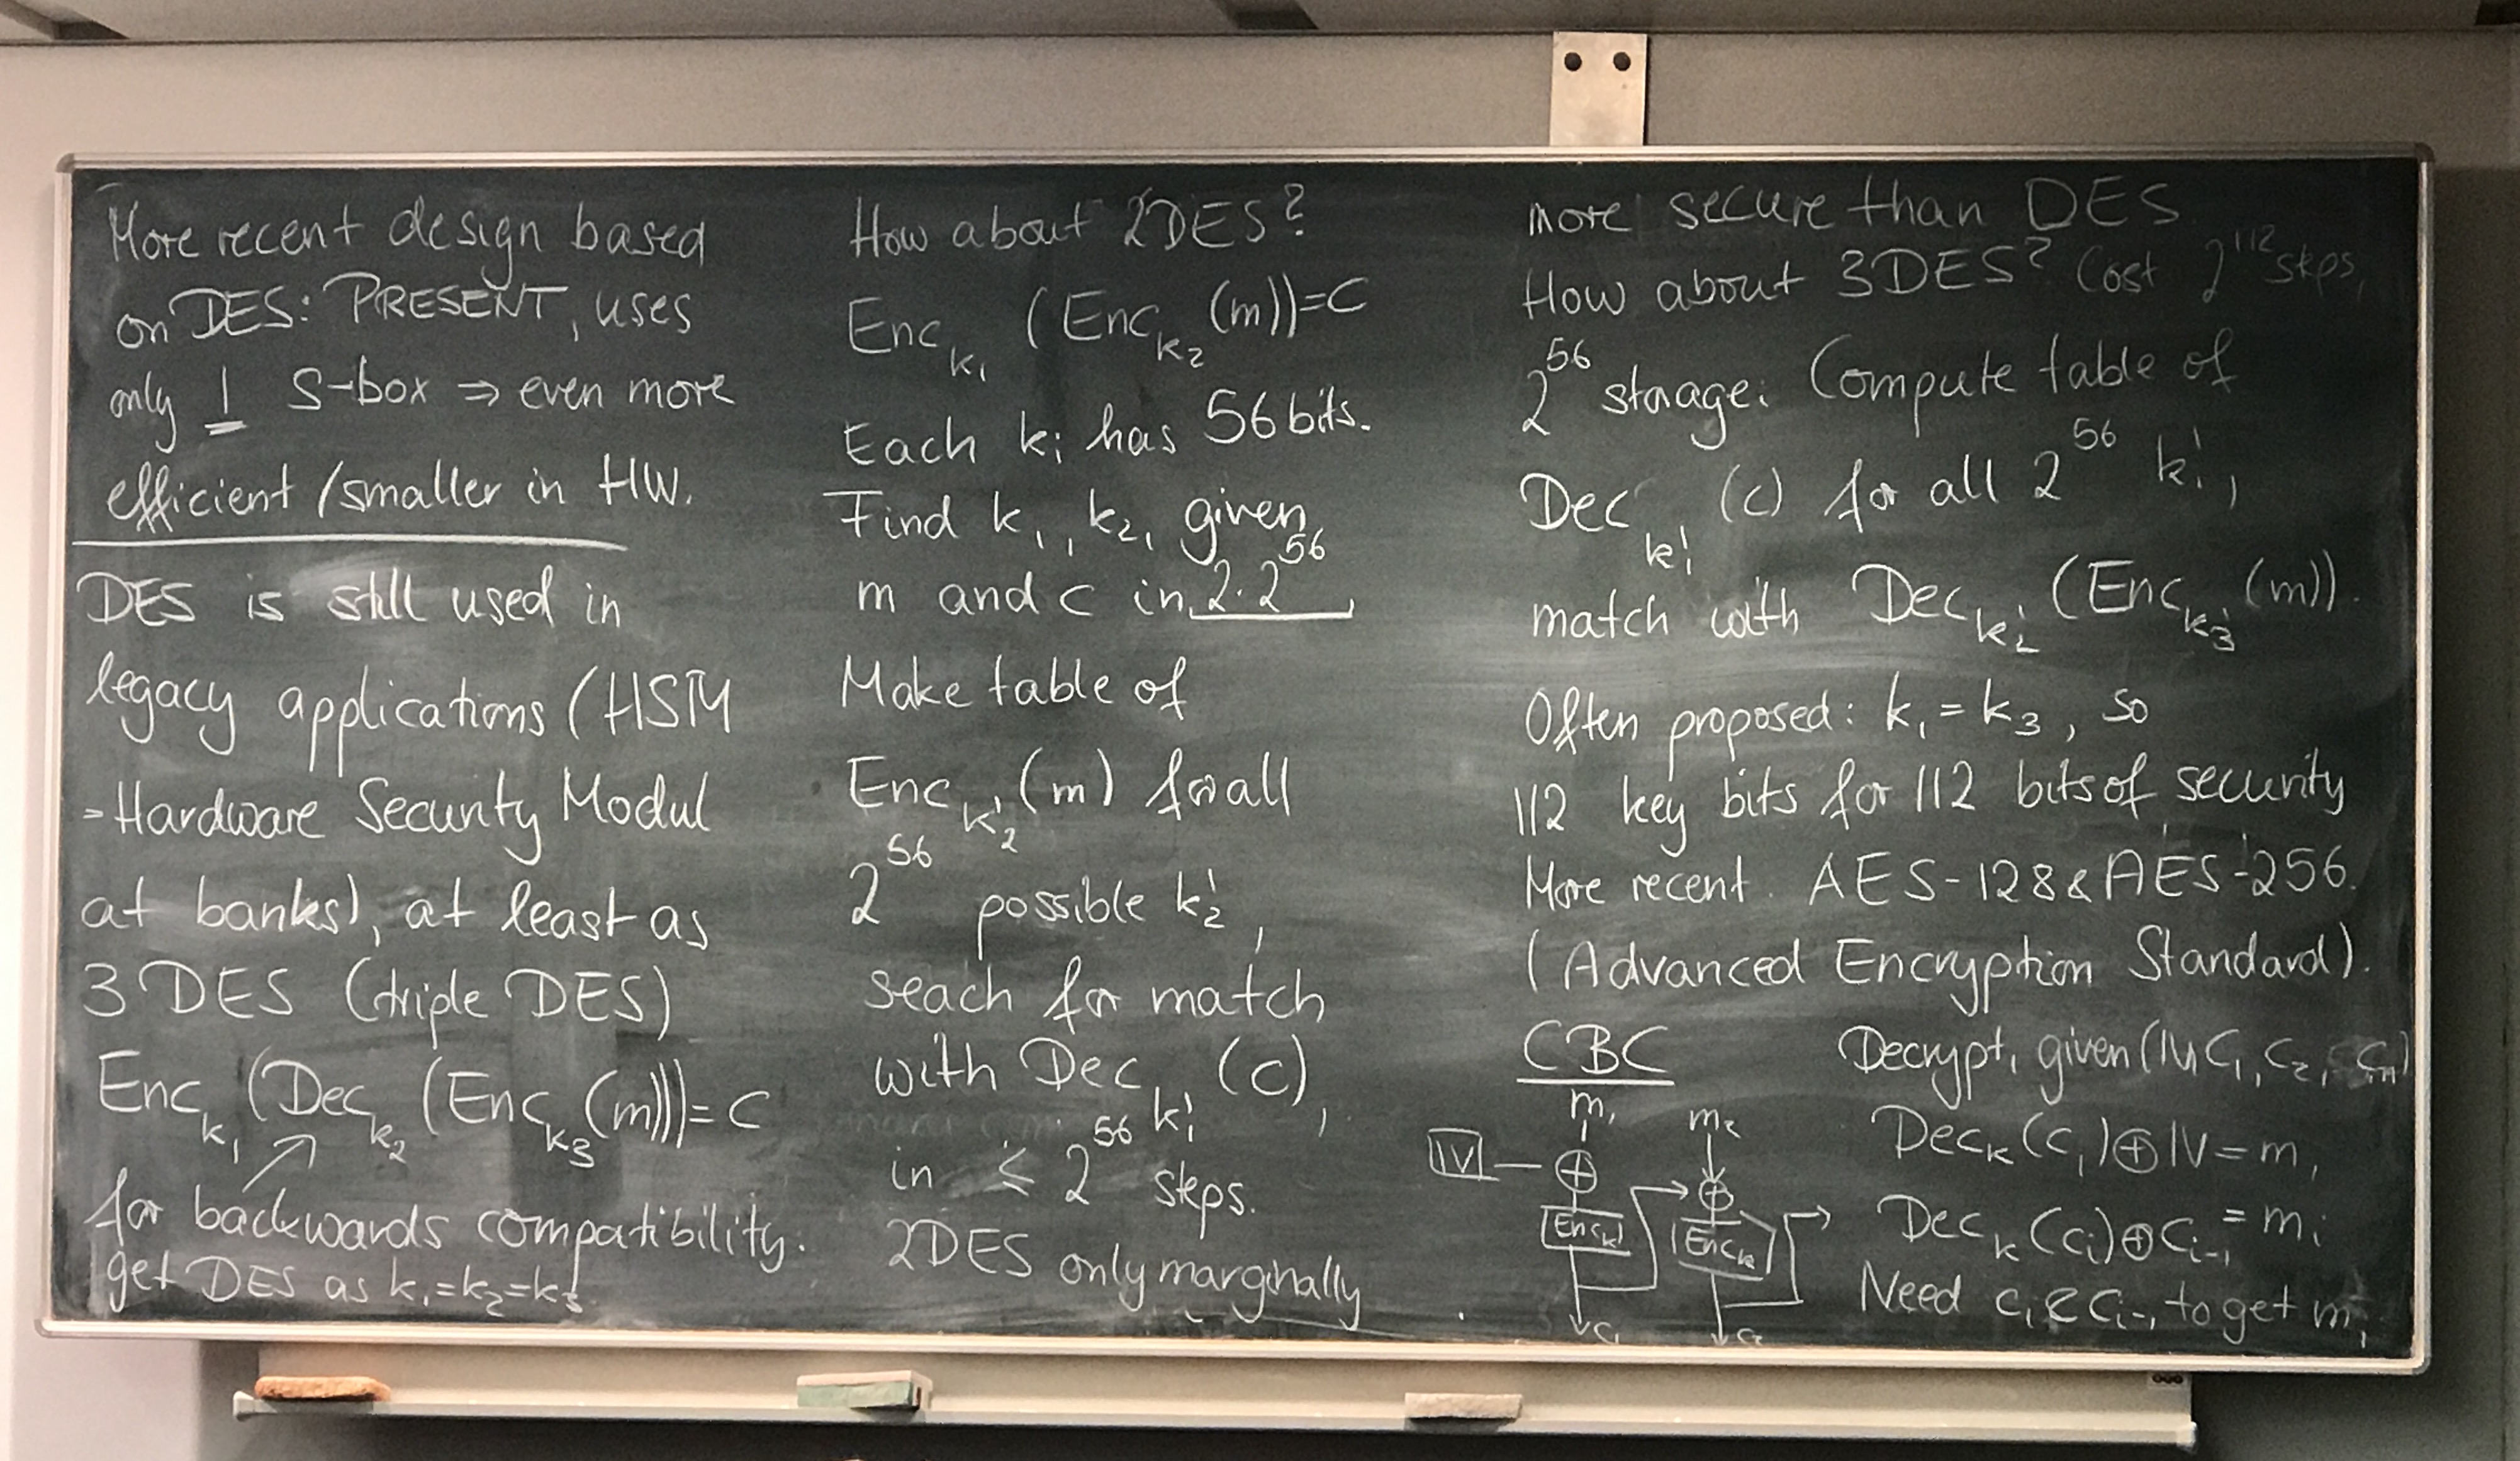 More recent design based
on DES: PRESENT, uses
only 1 S-box ⇒ even more
efficient / smaller in HW.
DES is still used in
legacy applications (HSM
= Hardware Security Modul
at banks), at least as
3DES (triple DES)
Enc_k₁ (Dec_k₂ (Enc_k₃ (m))) = C
for backwards compatibility.
get DES as k₁=k₂=k₃
How about 2DES?
Enc_k₁ (Enc_k₂ (m)) = C
Each kᵢ has 56 bits.
Find k₁, k₂, given
m and c in 2·2⁵⁶
Make table of
Enc_k₂' (m) for all
2⁵⁶ possible k₂',
seach for match
with Dec_k₁' (c),
in ≤ 2⁵⁶ steps.
2DES only marginally
more secure than DES.
How about 3DES? Cost 2¹¹² steps,
2⁵⁶ storage: Compute table of
Dec_k₁' (c) for all 2⁵⁶ k₁',
match with Dec_k₂' (Enc_k₃' (m)).
Often proposed: k₁ = k₃, so
112 key bits for 112 bits of security
More recent. AES-128 & AES-256.
(Advanced Encryption Standard).
CBC
m₁
m₂
IV
⊕
⊕
Enc_k
Enc_k
c₁
c₂
Decrypt, given (IV, C₁, C₂, … Cₙ)
Dec_k (c₁) ⊕ IV = m₁
Dec_k (cᵢ) ⊕ Cᵢ₋₁ = mᵢ
Need cᵢ & Cᵢ₋₁ to get mᵢ